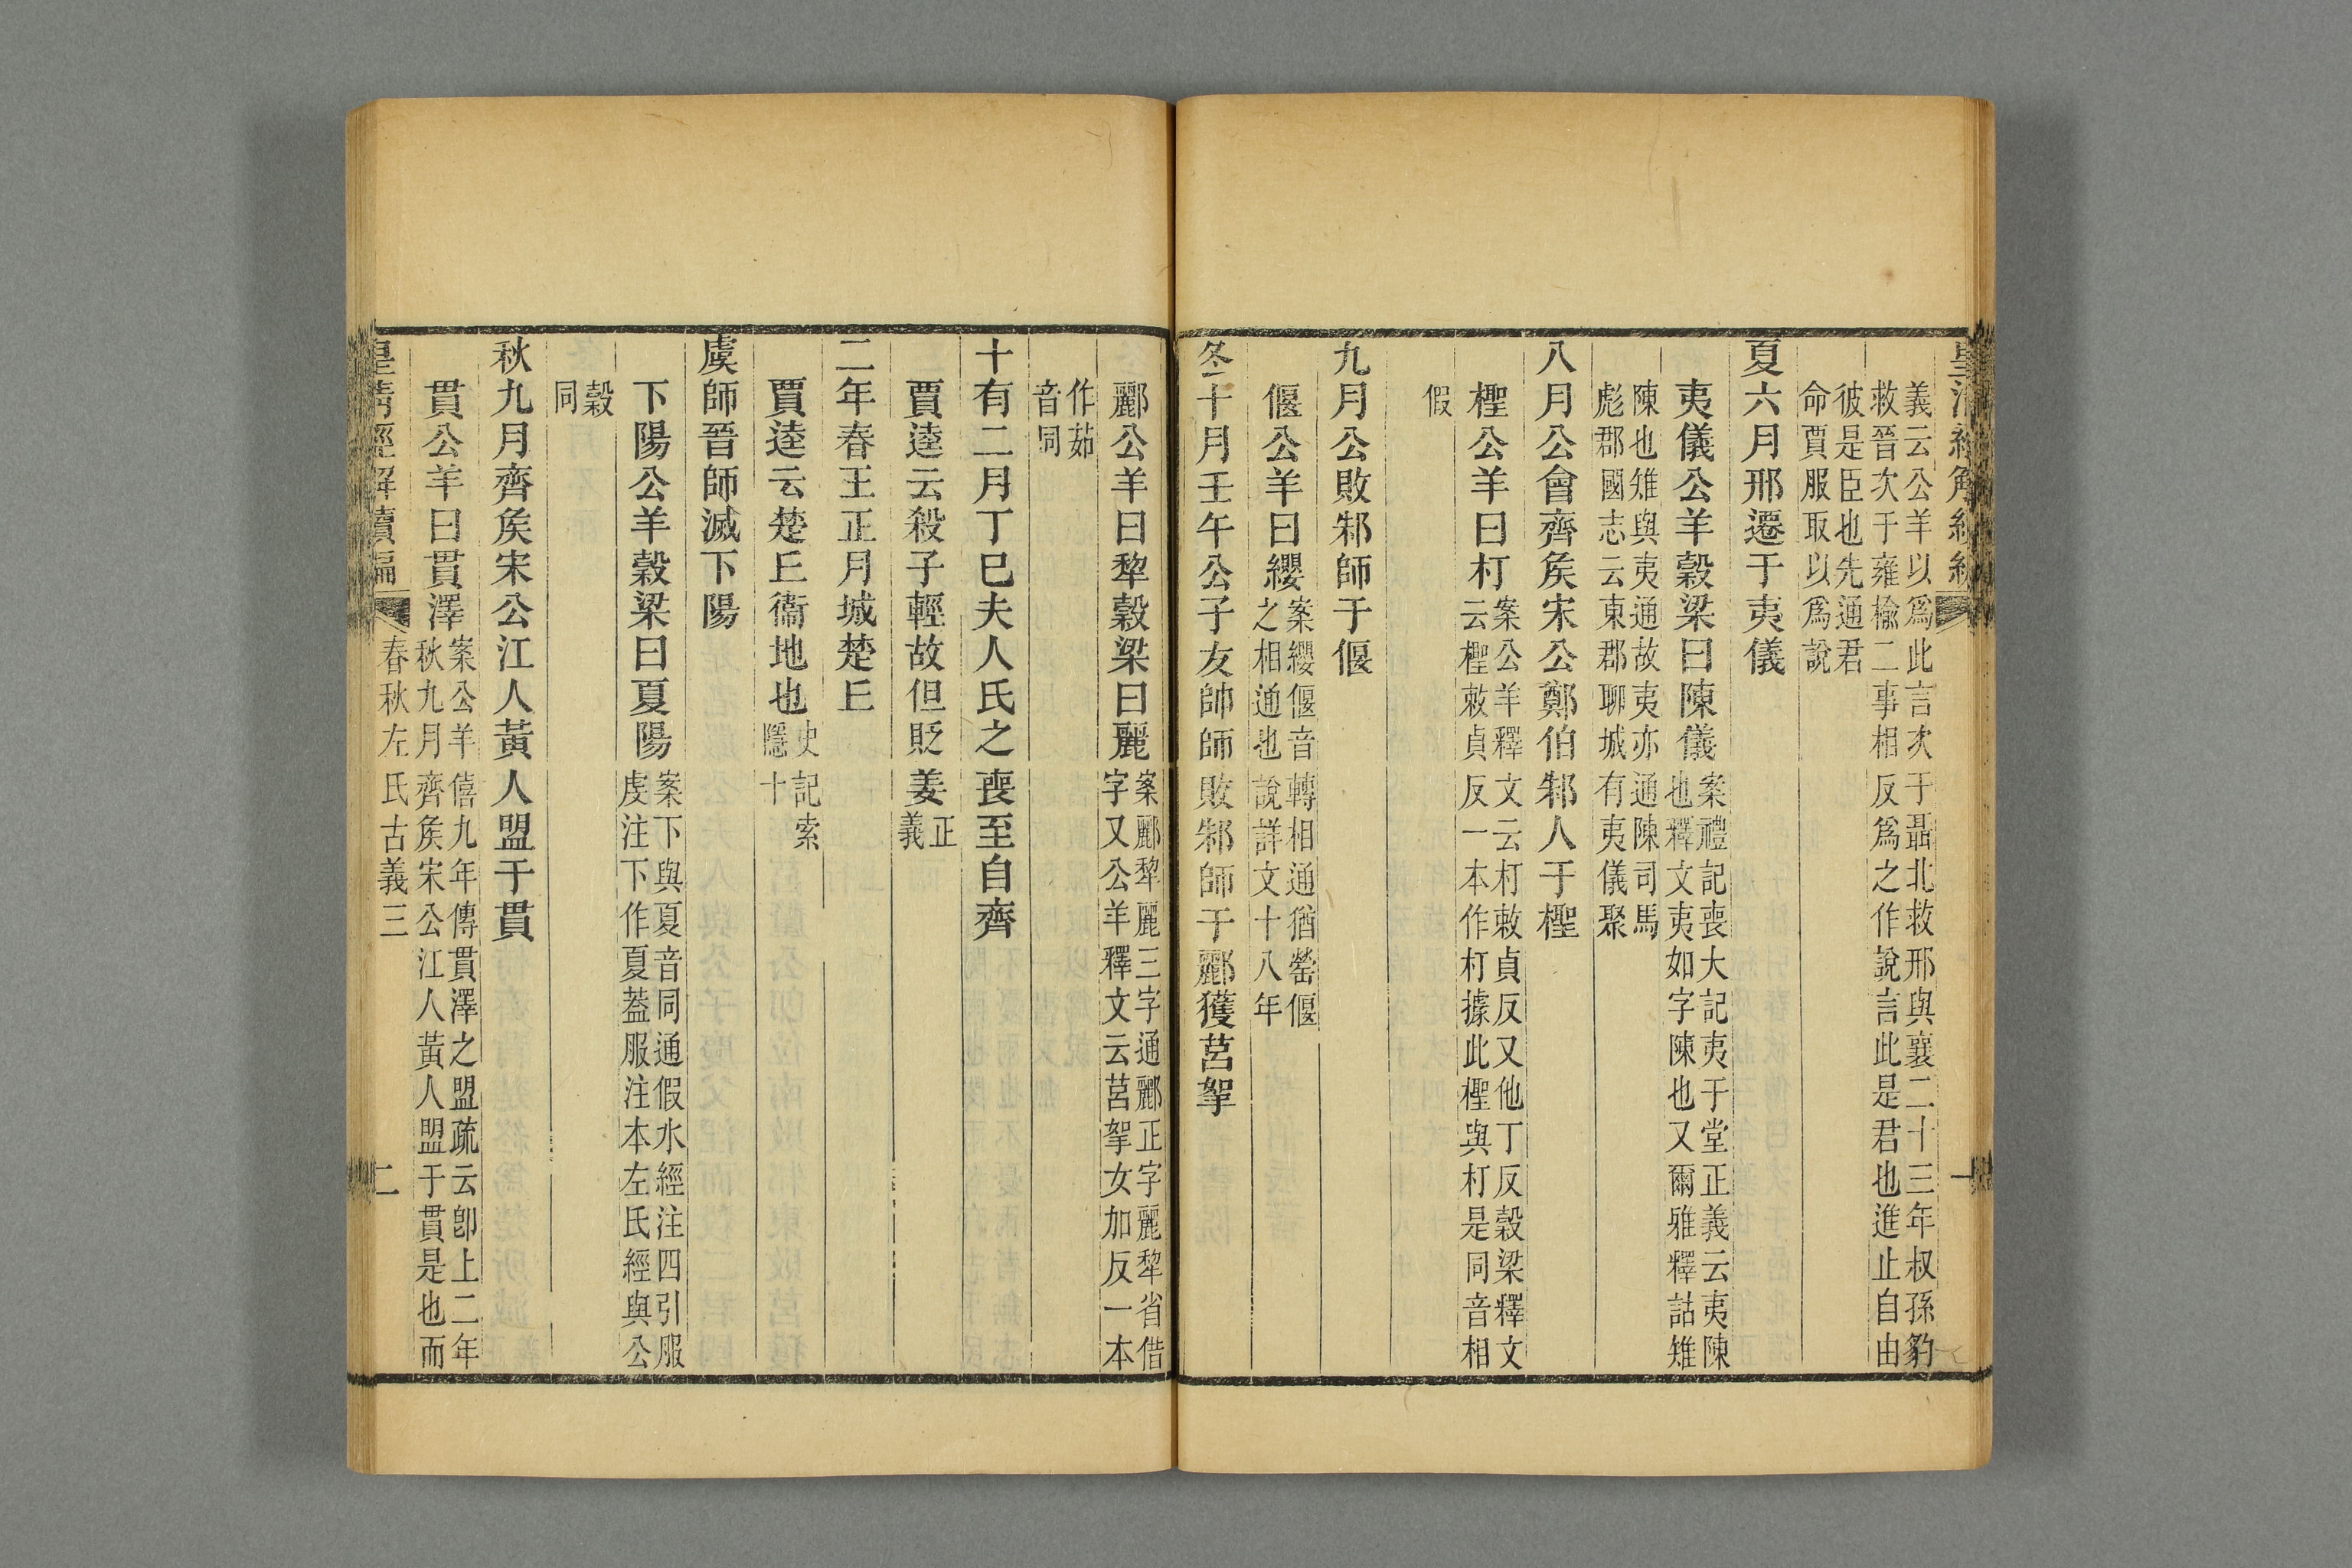 義云公羊以爲此言次于聶北救邢與襄二十三年叔孫豹
救晉次于雍榆二事相反爲之作說言此是君也進止自由
彼是臣也先通君
命賈服取以爲說
夏六月邢遷于夷儀
夷儀公羊穀梁曰陳儀
案禮記喪大記夷于堂正義云夷陳
也釋文夷如字陳也又爾雅釋詁雉
陳也雉與夷通故夷亦通陳司馬
彪郡國志云東郡聊城有夷儀聚
八月公會齊矦宋公鄭伯邾人于檉
檉公羊曰朾
案公羊釋文云朾敕貞反又他丁反穀梁釋文
云檉敕貞反一本作朾據此檉與朾是同音相
假
九月公敗邾師于偃
偃公羊曰纓
案纓偃音轉相通猶罃偃
之相通也說詳文十八年
冬十月壬午公子友帥師敗邾師于酈獲莒挐
酈公羊曰犂穀梁曰麗
案酈犂麗三字通酈正字麗犂省借
字又公羊釋文云莒挐女加反一本
作茹
音同
十有二月丁巳夫人氏之喪至自齊
賈逵云殺子輕故但貶姜
正
義
二年春王正月城楚丘
賈逵云楚丘衞地也
史記索
隱十
虞師晉師滅下陽
下陽公羊穀梁曰夏陽
案下與夏音同通假水經注四引服
虔注下作夏蓋服注本左氏經與公
穀
同
秋九月齊矦宋公江人黃人盟于貫
貫公羊曰貫澤
案公羊僖九年傳貫澤之盟疏云卽上二年
秋九月齊矦宋公江人黃人盟于貫是也而
皇清經解續編
春秋左氏古義三
二